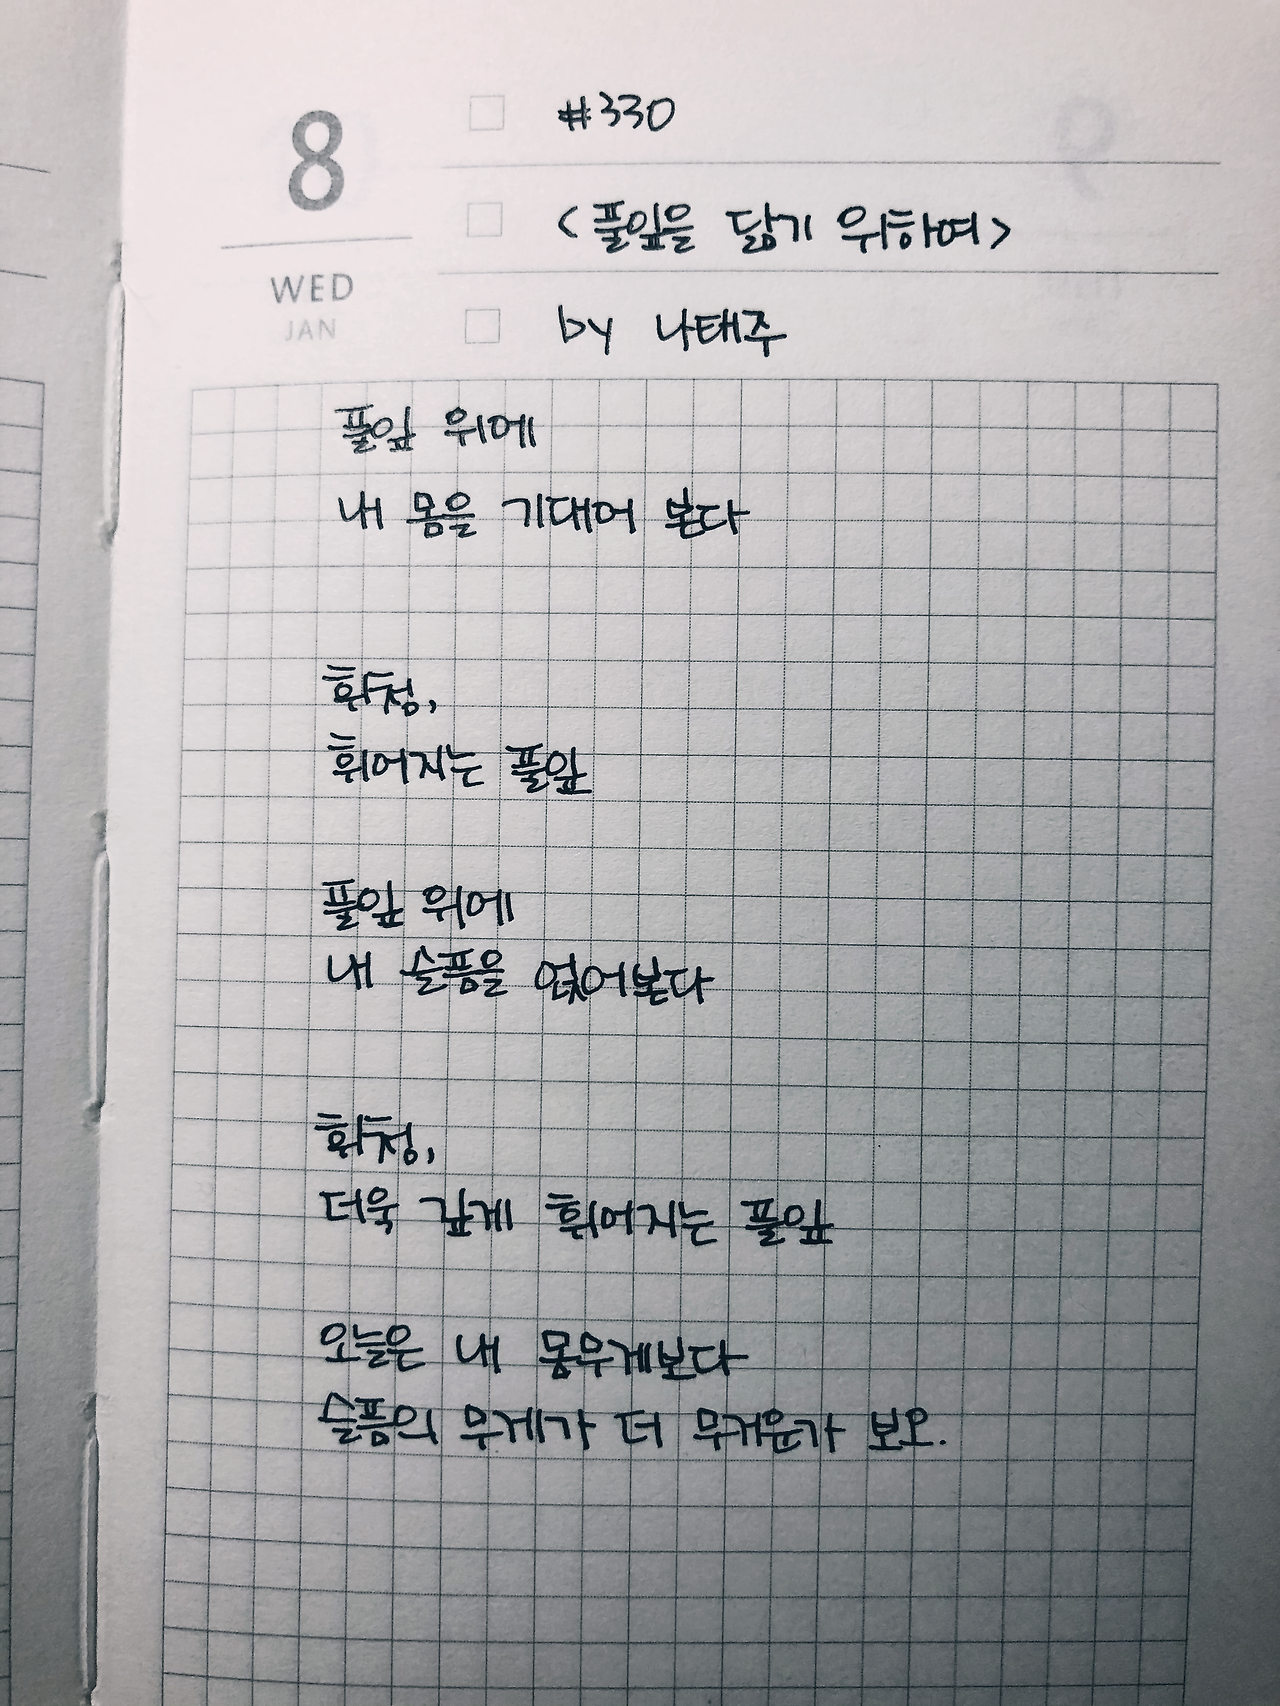 8
WED
JAN
#330
<풀잎을 닮기 위하여>
by 나태주
풀잎 위에
내 몸을 기대어 본다
휘청,
휘어지는 풀잎
풀잎 위에
내 슬픔을 얹어본다
휘청,
더욱 깊게 휘어지는 풀잎
오늘은 내 몸무게보다
슬픔의 무게가 더 무거운가 보오.